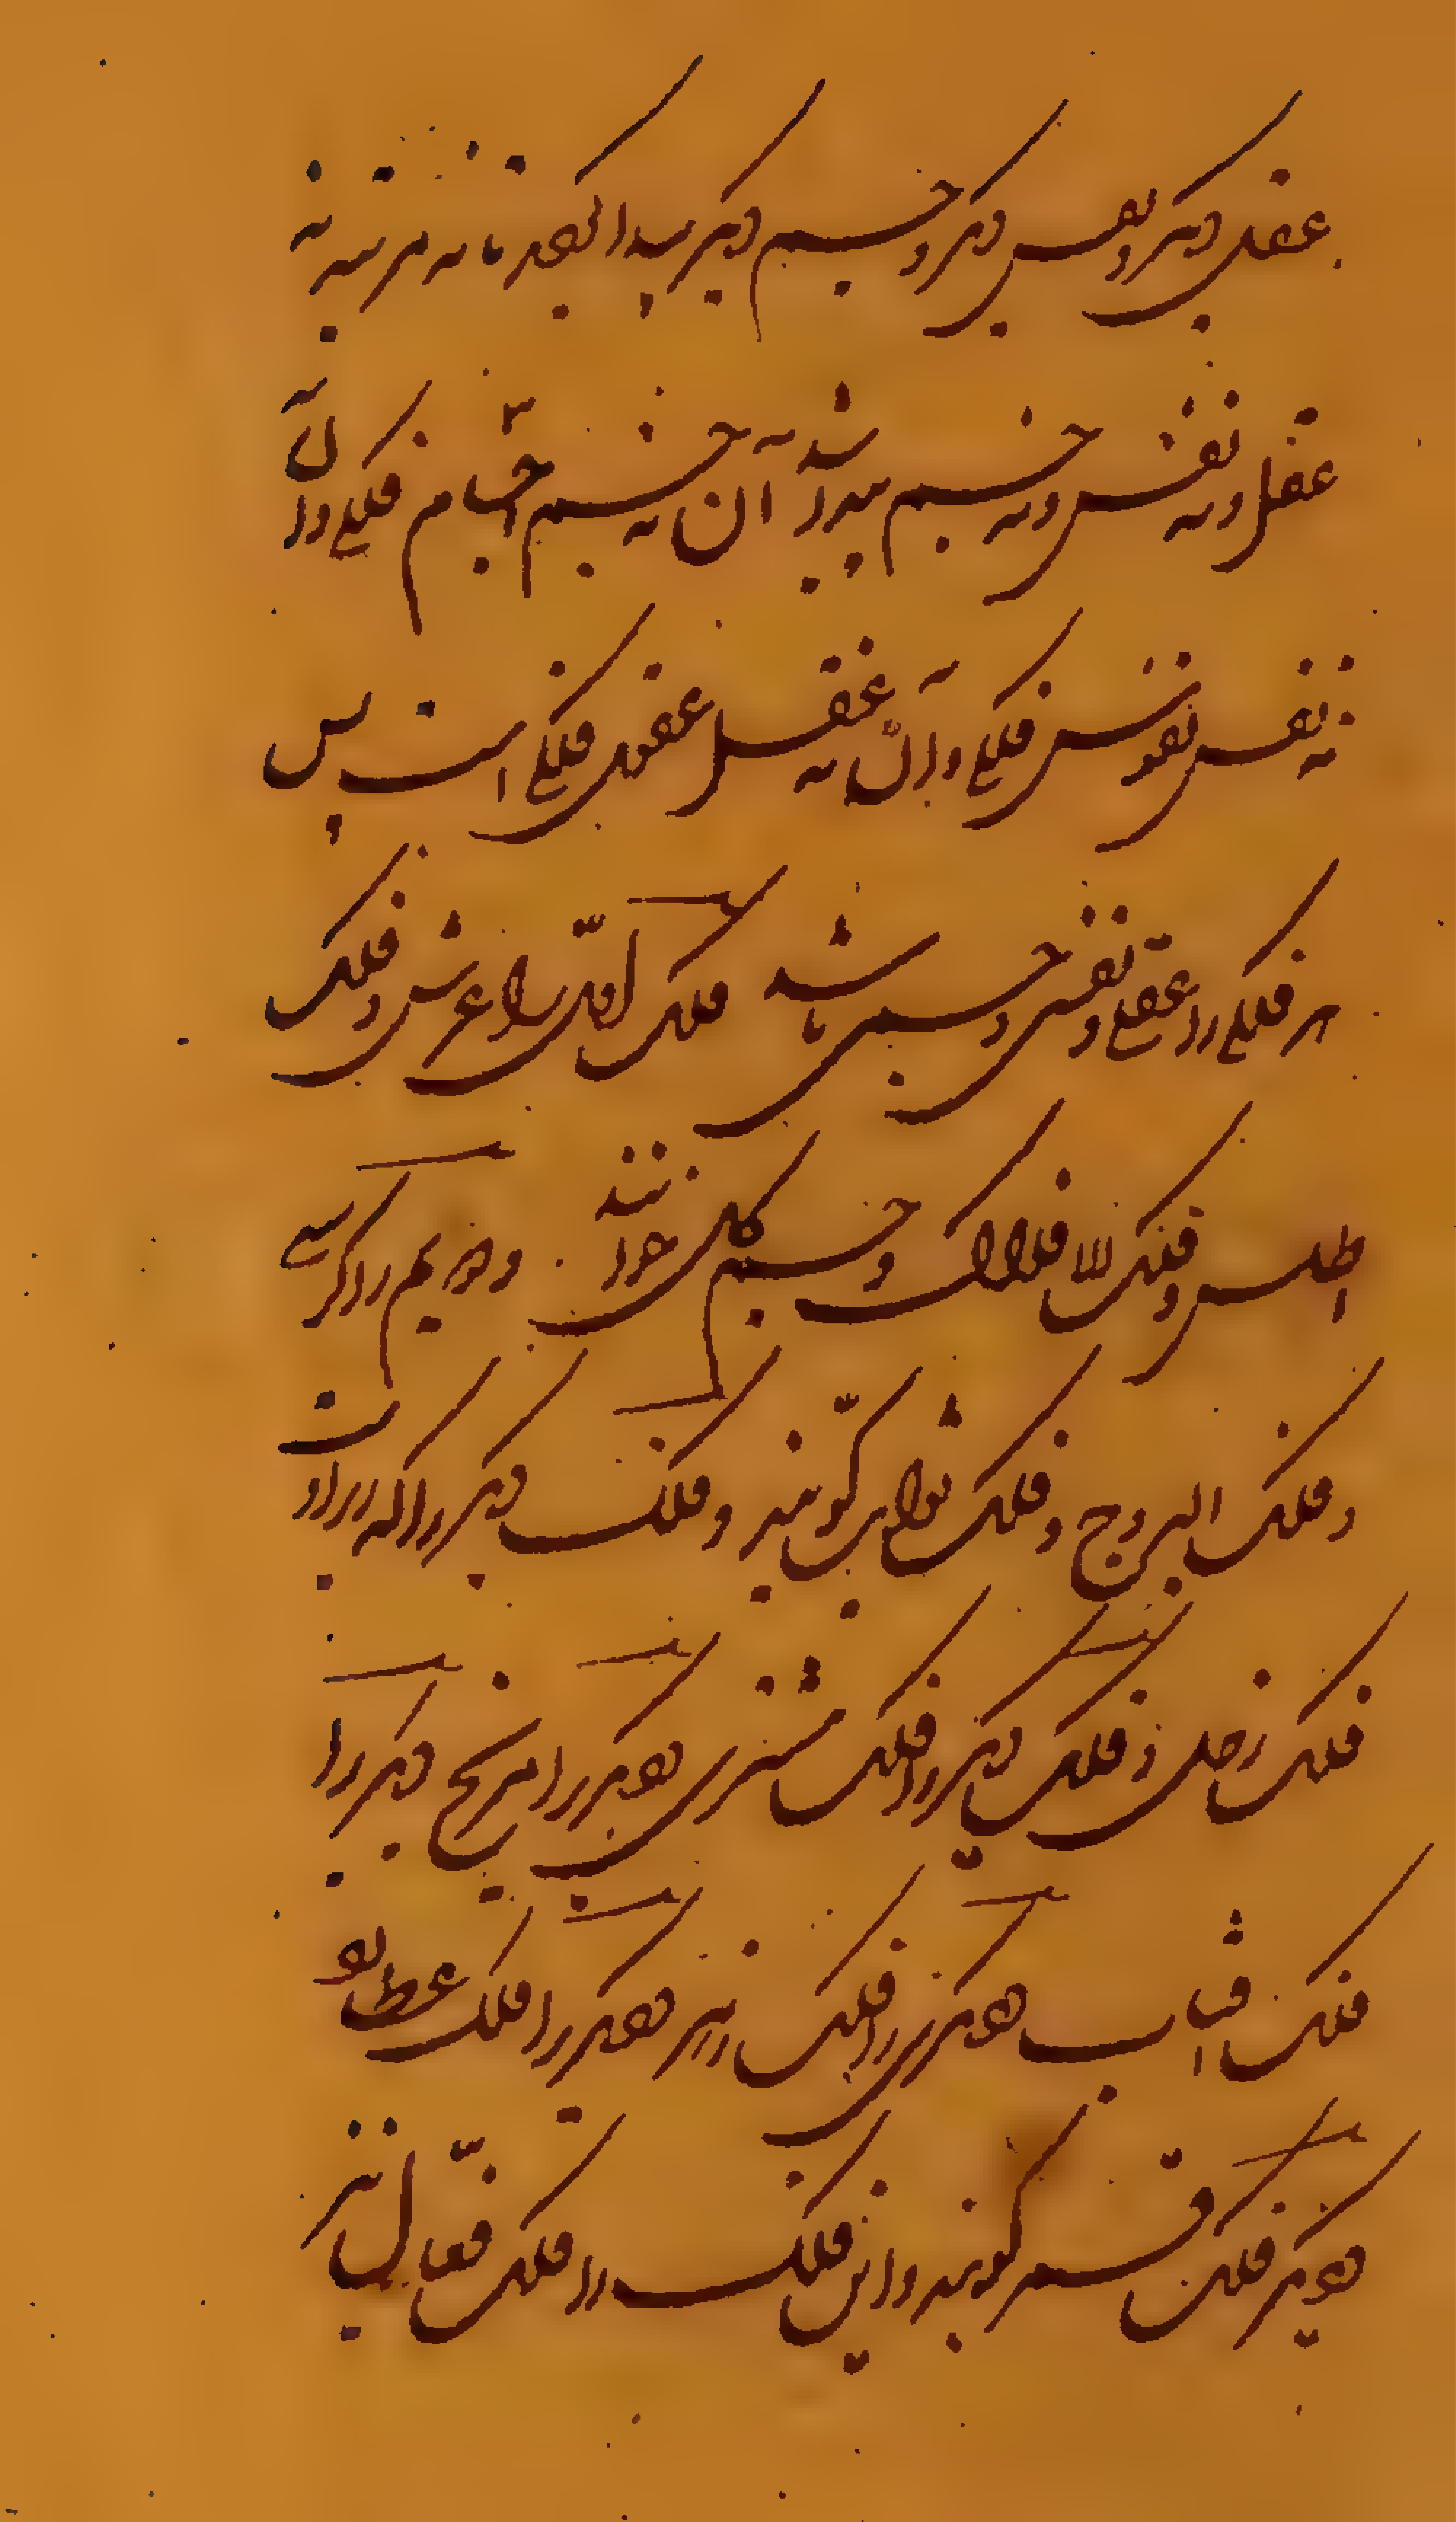 عقل دیگر و نفس دیگر و جسم دیگر پیدا کرد تا به مرتبه نه
عقل و نه نفس و نه جسم پیدا شد آن نه جسم اجسام فلکی و آن
نه نفس نفوس فلکی و آن نه عقل عقول فلکی است پس
هر فلکی را عقلی و نفسی و جسمی باشد فلک اول را عرش و فلک
اطلس و فلک الافلاک و جسم کل خوانند و دویم را کرسی
و فلک البروج و فلک ثوابت گویند و فلک دیگر را که در اوست
فلک زحل و فلک دیگر را فلک مشتری دیگر را مریخ دیگر را
فلک آفتاب دیگری را فلک زهره دیگر را فلک عطارد
دیگر فلک قمر گویند و این فلک را فلک فعال نیز